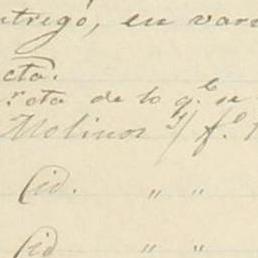 ntregó, en vari
cta.
rcta de lo q.e se
Molinos y f.o
Cid. " "
Cid " "